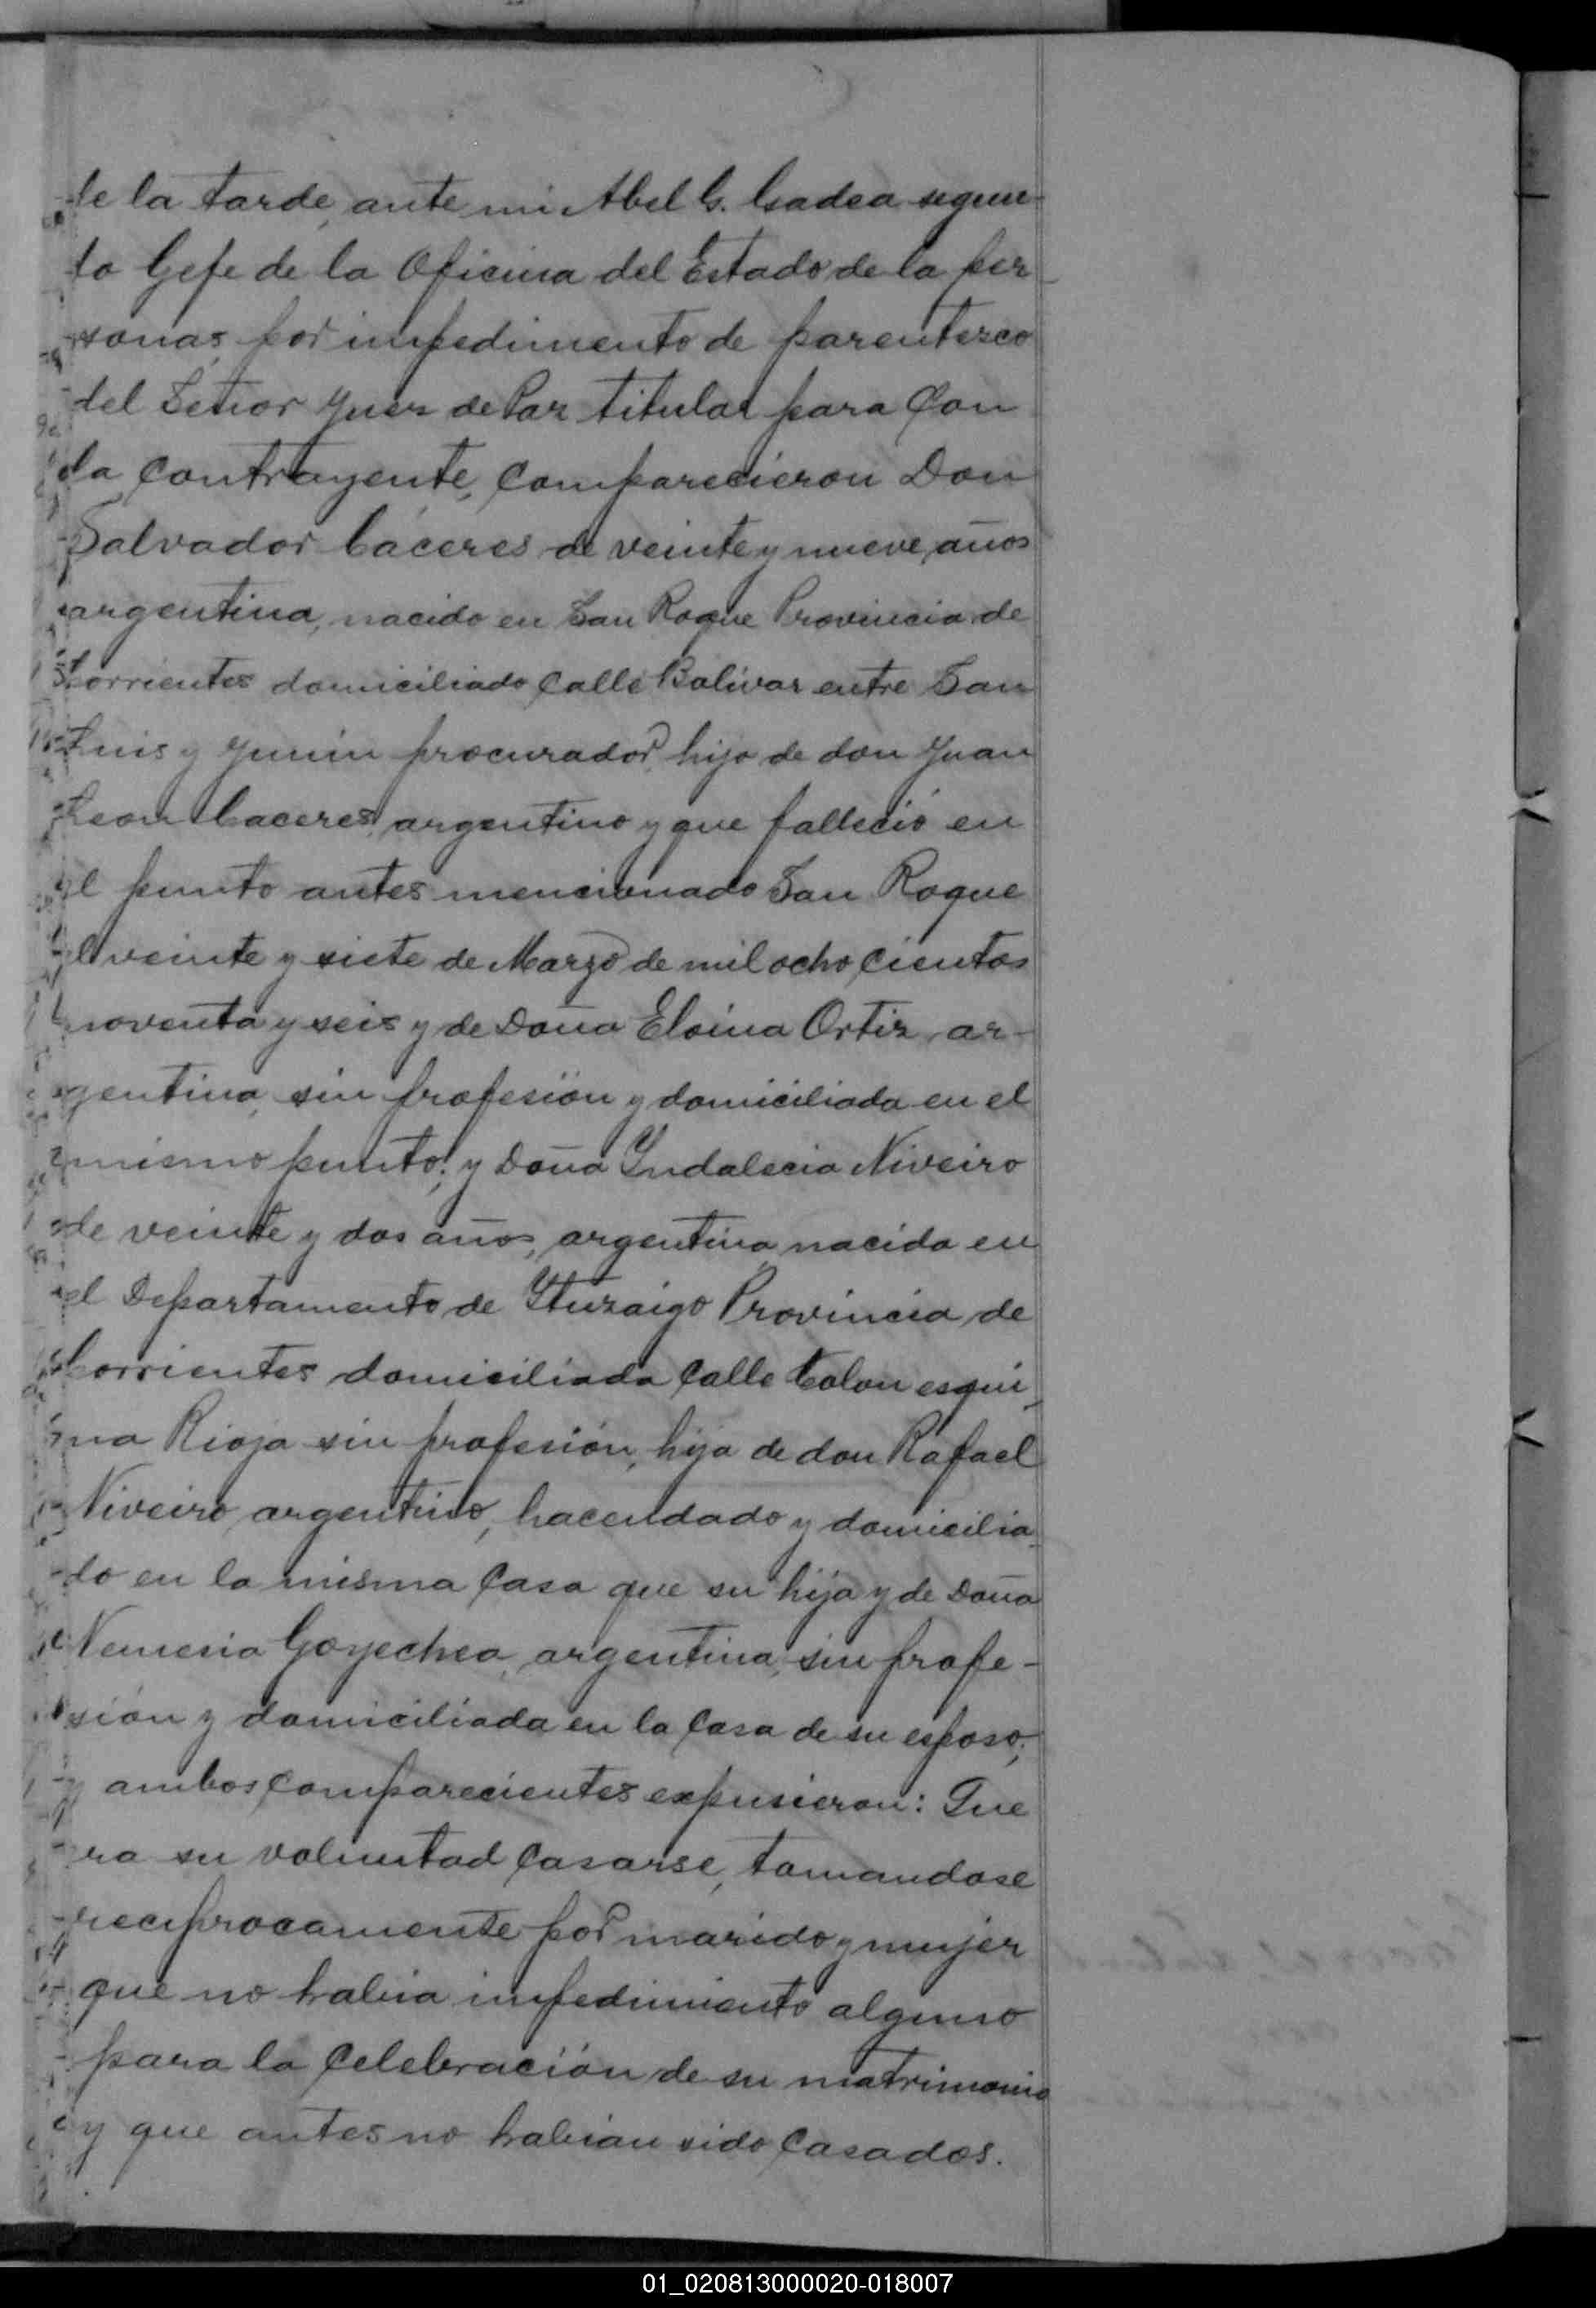 de la tarde, ante mi Abel G. Cadea segun-
to Gefe de la Oficina del Estado de la per
sonas, por impedimento de parentesco
del Señor Juez de Paz titular para con
la contrayente, comparecieron Don
Salvador Cáceres de veinte y nueve años
argentina, nacido en San Roque Provincia de
Corrientes domiciliado calle Bolivar entre San
Luis y Junin procurador, hijo de don Juan
Leon Caceres, argentino y que falleció en
el punto antes mencionado San Roque
el veinte y siete de Marzo de mil ocho cientos
noventa y seis y de Doña Eloina Ortiz, ar-
gentina, sin profesión y domiciliada en el
mismo punto; y Doña Yndalecia Niveiro
de veinte y dos años, argentina, nacida en
el Departamento de Ytuzaigo Provincia de
Corrientes domiciliada calle Colon esqui-
na Rioja sin profesión, hija de don Rafael
Niveiro, argentino, hacendado y domicilia-
do en la misma casa que su hija y de Doña
Nemesia Goyechea, argentina, sin profe-
sión y domiciliada en la casa de su esposo;
y ambos comparecientes expusieron: Que
era su voluntad casarse, tomandose
reciprocamente por marido y mujer
que no habia impedimiento alguno
para la celebración de su matrimonio
y que antes no habian sido casados.
01_020813000020-018007